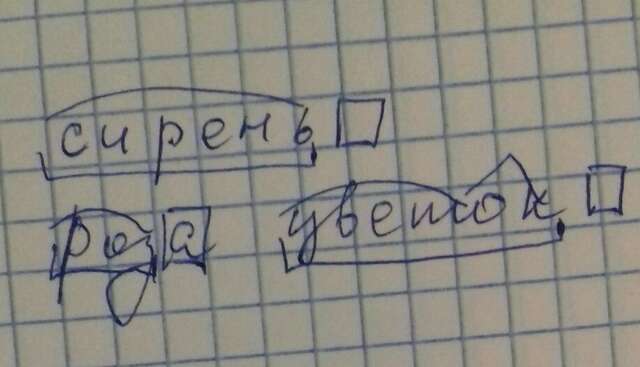 сирень
роза цветок